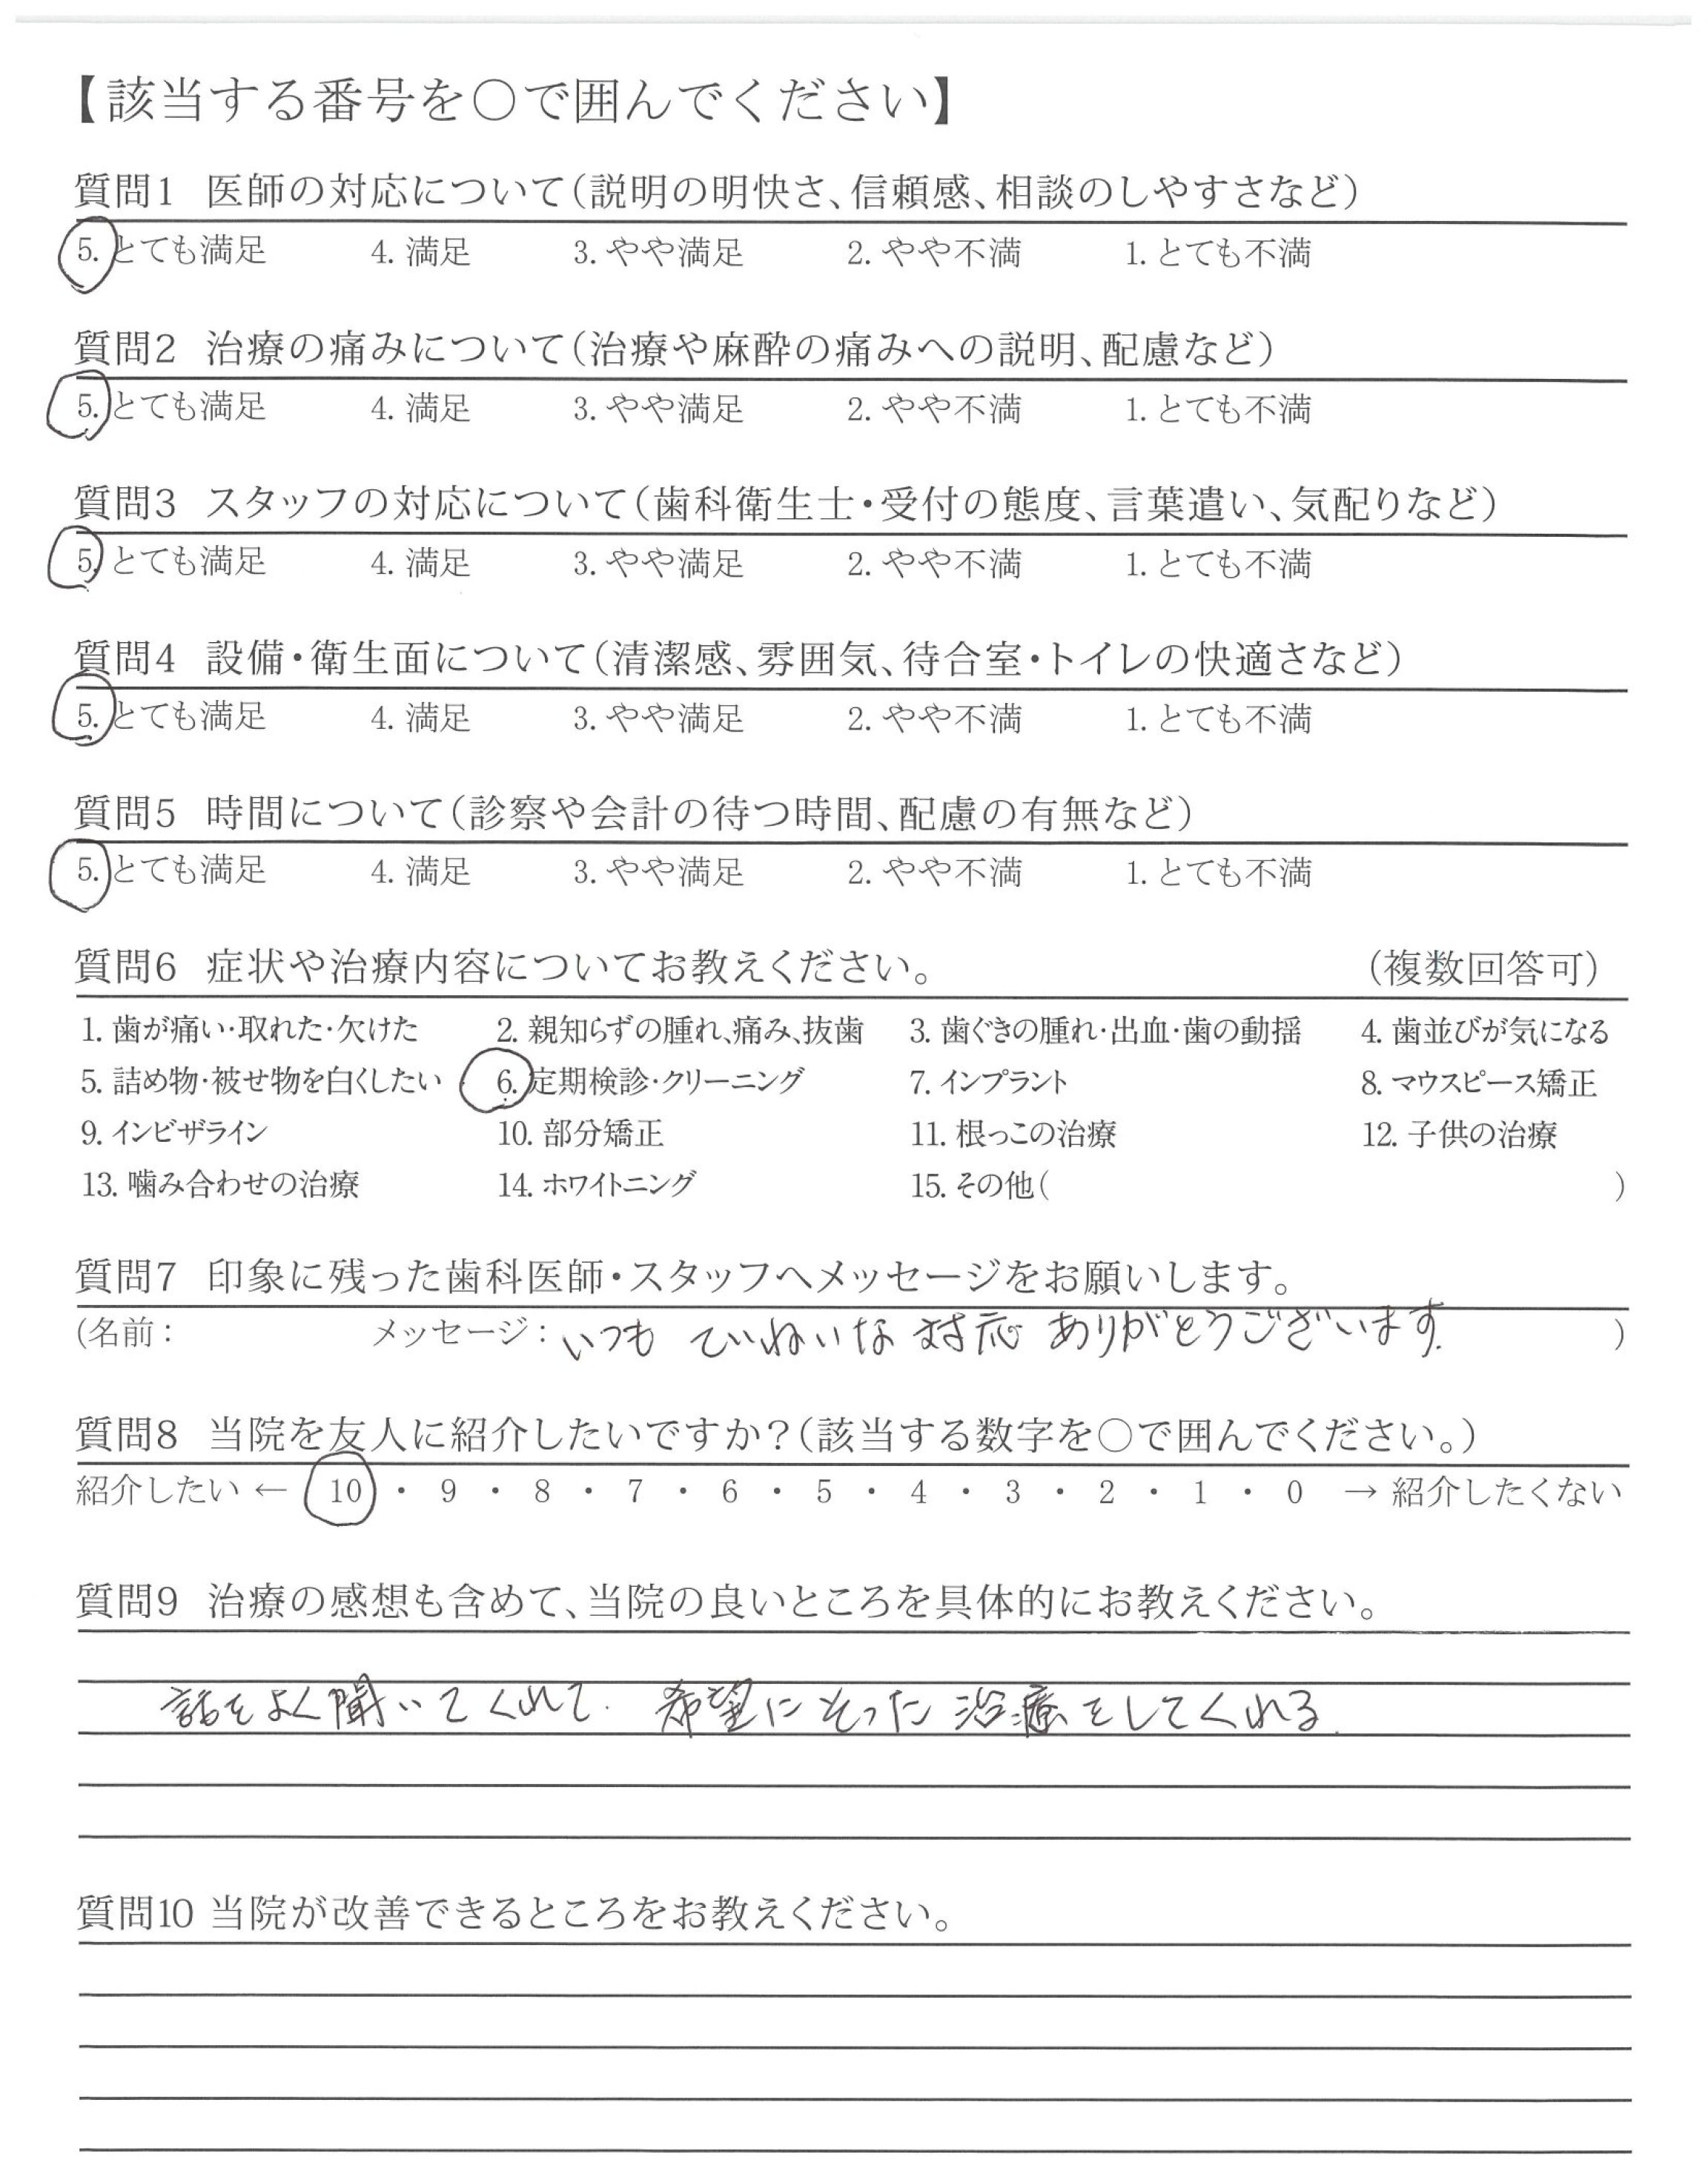 【該当する番号を○で囲んでください】
質問1 医師の対応について(説明の明快さ、信頼感、相談のしやすさなど)
5. とても満足 4. 満足 3. やや満足 2. やや不満 1. とても不満
質問2 治療の痛みについて(治療や麻酔の痛みへの説明、配慮など)
5. とても満足 4. 満足 3. やや満足 2. やや不満 1. とても不満
質問3 スタッフの対応について(歯科衛生士・受付の態度、言葉遣い、気配りなど)
5. とても満足 4. 満足 3. やや満足 2. やや不満 1. とても不満
質問4 設備・衛生面について(清潔感、雰囲気、待合室・トイレの快適さなど)
5. とても満足 4. 満足 3. やや満足 2. やや不満 1. とても不満
質問5 時間について(診察や会計の待つ時間、配慮の有無など)
5. とても満足 4. 満足 3. やや満足 2. やや不満 1. とても不満
質問6 症状や治療内容についてお教えください。 (複数回答可)
1. 歯が痛い・取れた・欠けた 2. 親知らずの腫れ、痛み、抜歯 3. 歯ぐきの腫れ・出血・歯の動揺 4. 歯並びが気になる
5. 詰め物・被せ物を白くしたい 6. 定期検診・クリーニング 7. インプラント 8. マウスピース矯正
9. インビザライン 10. 部分矯正 11. 根っこの治療 12. 子供の治療
13. 噛み合わせの治療 14. ホワイトニング 15. その他( )
質問7 印象に残った歯科医師・スタッフへメッセージをお願いします。
(名前: メッセージ: いつも ていねいな 対応 ありがとうございます. )
質問8 当院を友人に紹介したいですか?(該当する数字を○で囲んでください。)
紹介したい ← 10 ・ 9 ・ 8 ・ 7 ・ 6 ・ 5 ・ 4 ・ 3 ・ 2 ・ 1 ・ 0 → 紹介したくない
質問9 治療の感想も含めて、当院の良いところを具体的にお教えください。
話をよく聞いてくれて. 希望にそった治療をしてくれる.
質問10 当院が改善できるところをお教えください。